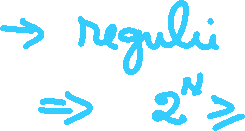 → regulii
⇒ 2^N ≥